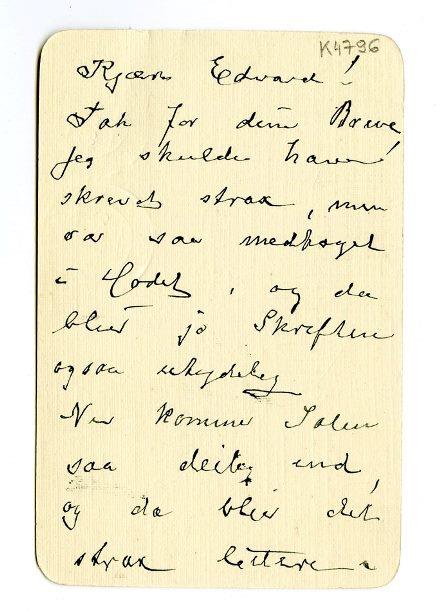 K4796
Kjære Edvard!
Tak for dine Breve,
jeg skulde have
skrevet strax, men
var saa medtaget
i Hodet, og da
blier jo Skriften
ogsaa utydelig
Nu kommer Solen
saa deilig ind,
og da blier det
strax lettere